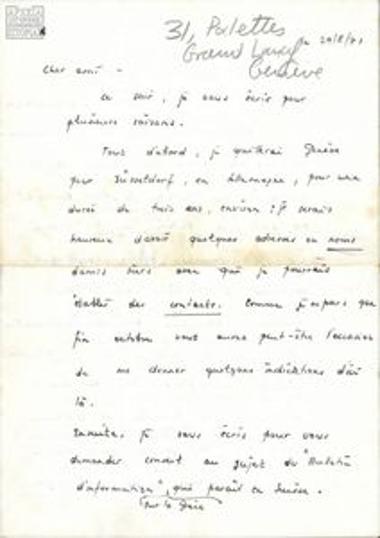 31, Palettes
Grand Lancy
Genève
le 20/8/71
Cher ami -
Ce soir, je vous écris pour
plusieurs raisons.
Tout d'abord, je quitterai Genève
pour Düsseldorf, en Allemagne, pour une
durée de trois ans, environ : je serais
heureux d'avoir quelques adresses ou noms
d'amis sûrs avec qui je pourrais
établir des contacts. Comme je ne pars que
fin octobre vous aurez peut-être l'occasion
de me donner quelques indications d'ici
là.
Ensuite, je vous écris pour vous
demander conseil au sujet du "Bulletin
d'information", qui paraît en Suisse.
sur la